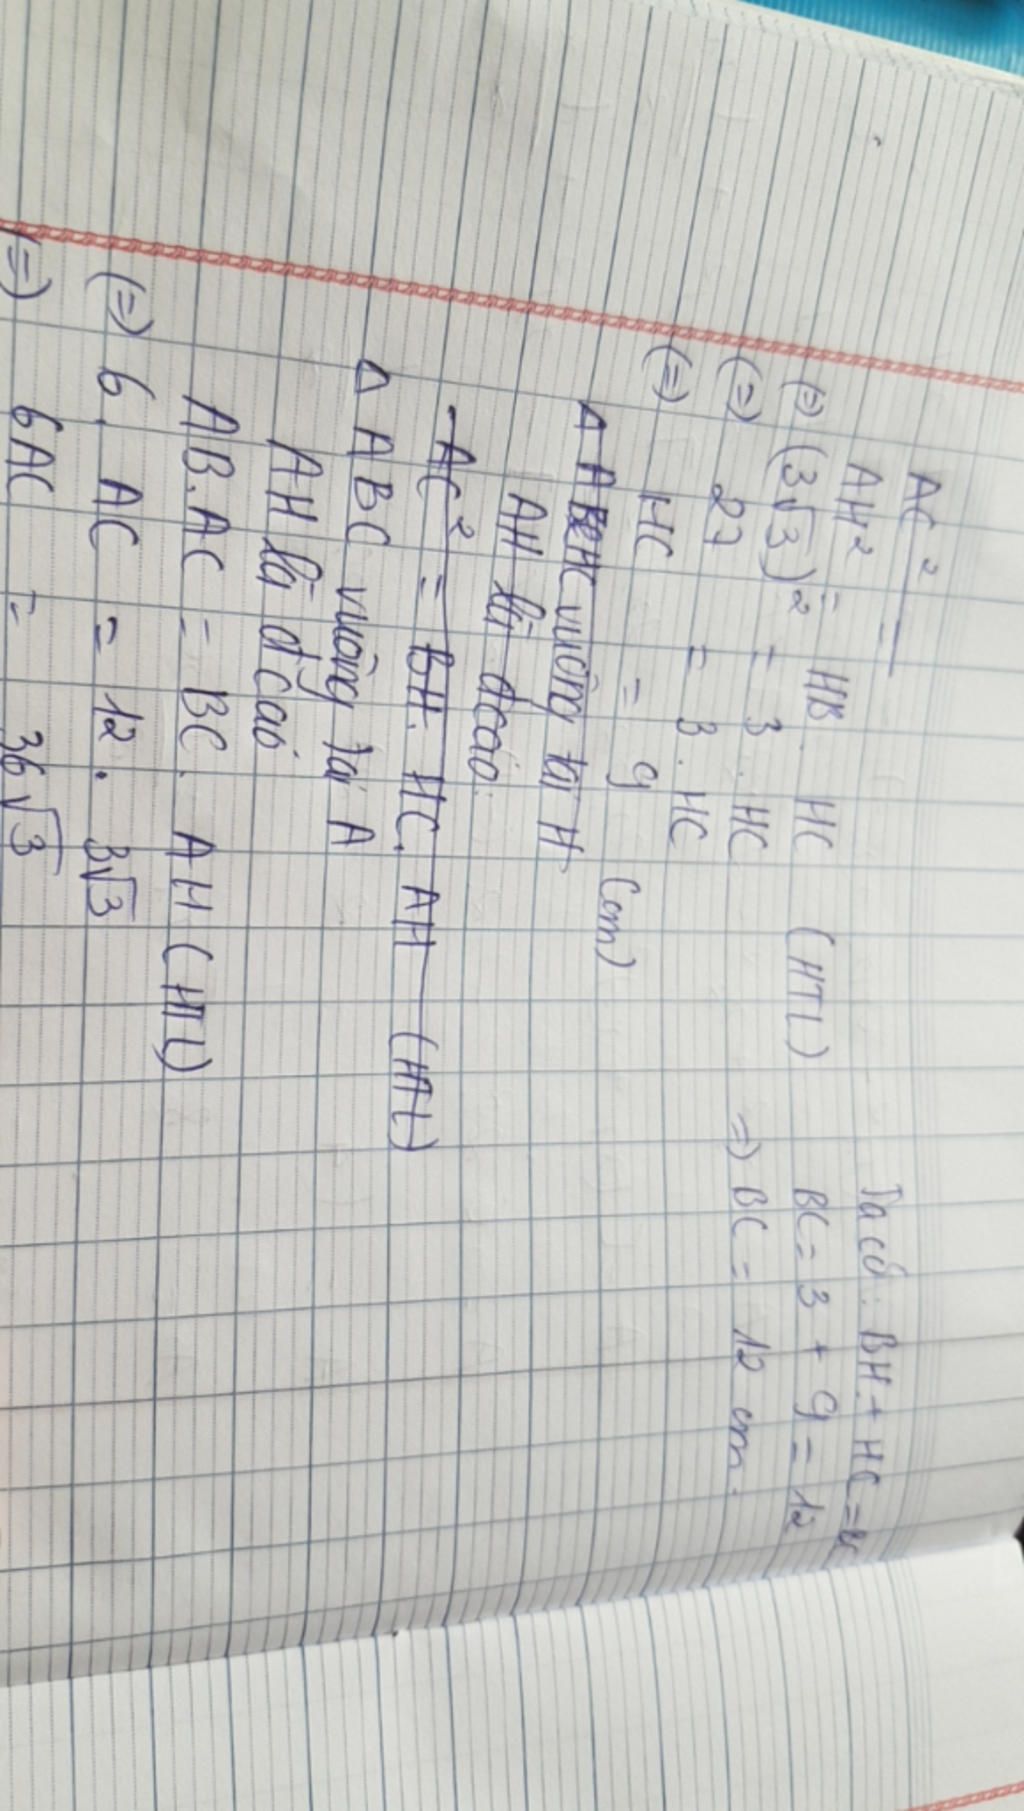 AC² =
AH² = HB. HC (HTL)
(=) (3√3)² = 3. HC
(=) 27 = 3. HC
(=) HC = 9 (cm)
Ta có: BH + HC =
BC = 3 + 9 = 12
=) BC = 12 cm.
vuông tại H
AH là đ cao:
AC² = BH. HC. AH (HTL)
Δ ABC vuông tại A
AH là đ cao
AB. AC = BC. AH (HTL)
(=) 6. AC = 12. 3√3
(=) 6AC = 36√3